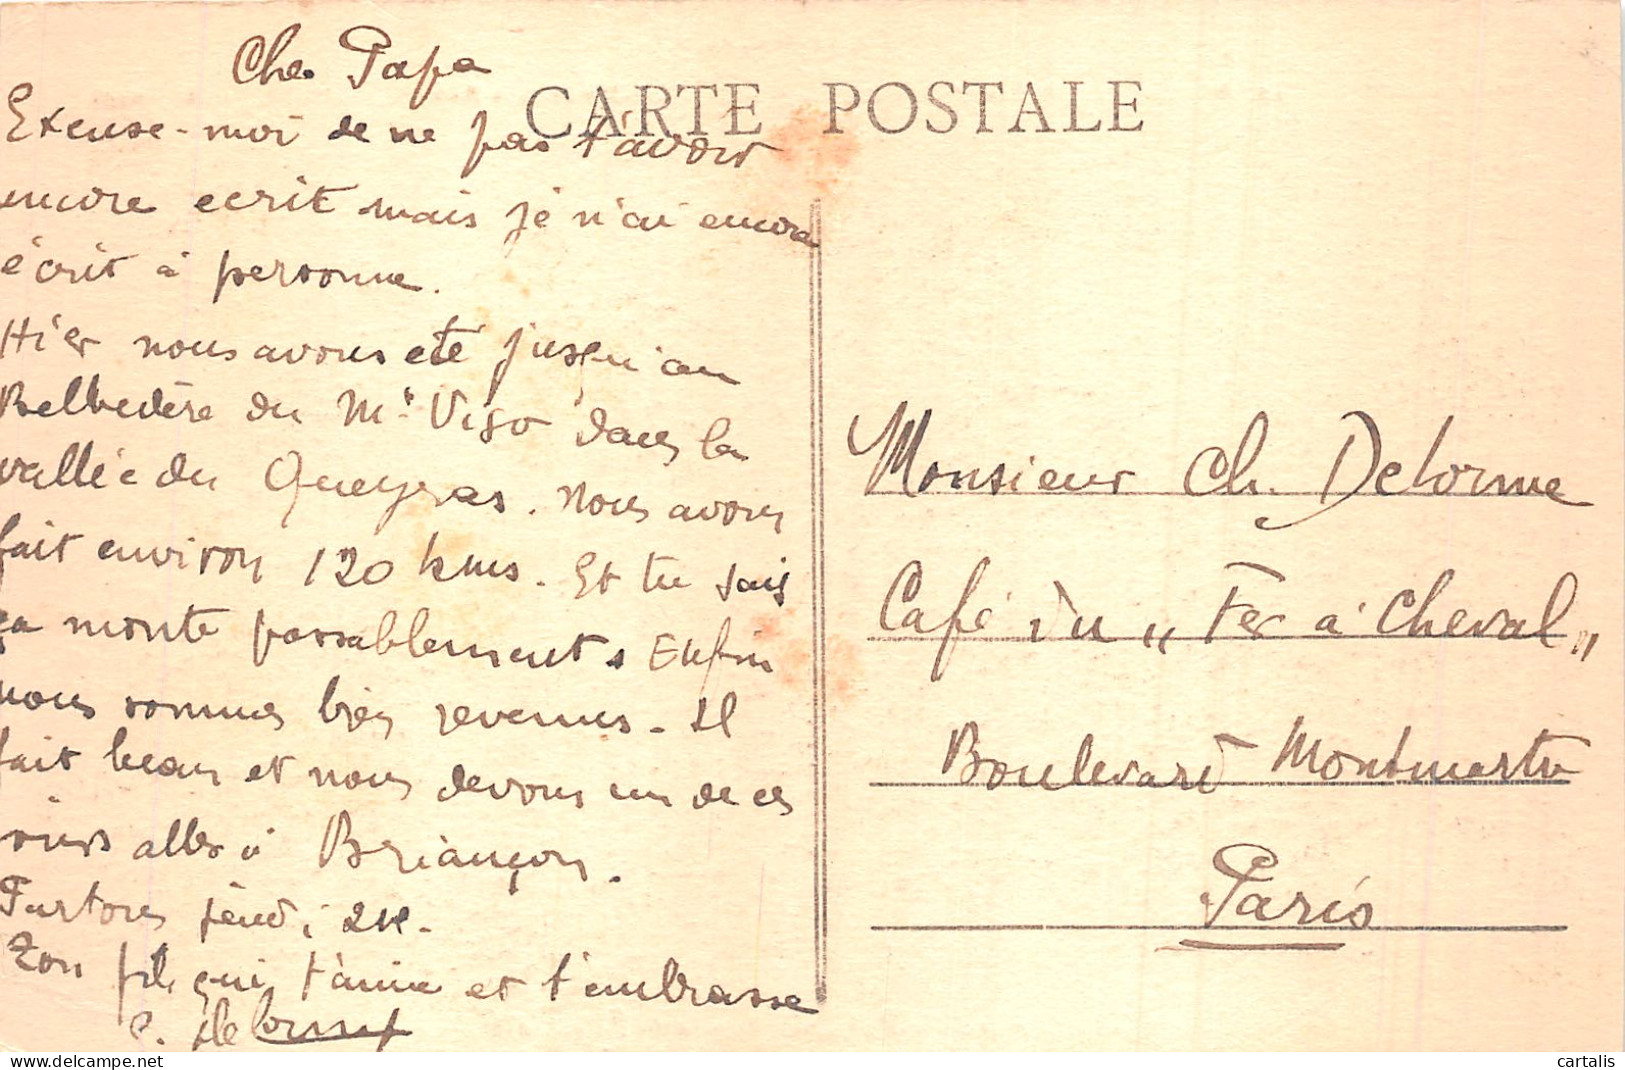 CARTE POSTALE
Cher Papa
Excuse-moi de ne pas t'avoir
encore ecrit mais je n'ai encore
écrit à personne.
Hier nous avons eté jusqu'au
Belvedère du Mt Viso dans la
vallée du Queyras. Nous avons
fait environ 120 kms. Et tu sais
ça monte passablement. Enfin
nous sommes bien revenus. Il
fait beau et nous devons un de ces
jours aller à Briançon.
Partons jeudi 24.
Ton fils qui t'aime et t'embrasse
C. Delorme
Monsieur Ch. Delorme
Café du "Fer à Cheval"
Boulevard Montmartre
Paris
cartalis